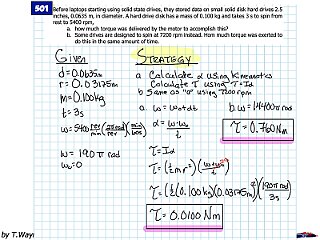 501
Before laptops starting using solid state drives, they stored data on small solid disk hard drives 2.5
inches, 0.0635 m, in diameter. A hard drive disk has a mass of 0.100 kg and takes 3 s to spin from
rest to 5400 rpm,
a. how much torque was delivered by the motor to accomplish this?
b. Some drives are designed to spin at 7200 rpm instead. How much torque was exerted to
do this in the same amount of time.
GIVEN
STRATEGY
d=0.0635m
r=0.03175m
m=0.100kg
t=3s
ω=5400 rev/min (2π rad/rev)(min/60s)
ω=190π rad
ω₀=0
a Calculate α using kinematics
Calculate τ using τ=Iα
b Same as "a" using 7200 rpm
a. ω=ω₀+αt
α=ω-ω₀/t
τ=Iα
τ=(½mr²)(ω+ω₀/t)
τ=(½(0.100kg)(0.03175m)²)(190π rad/3s)
τ=0.0100 Nm
b. ω=14400π rad
τ=0.760 Nm
by T.Wayne